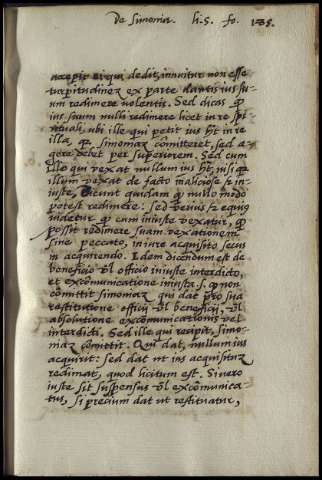 De Simonia. li. 5. fo. 135.
accepit et qui dedit, innuitur non esse
turpitudinem ex parte dantis ius su-
um redimere volentis. Sed dicas ꝙ
ius suum nulli redimere licet in re spi-
rituali, ubi ille qui petit ius ht in re
illa ꝙ simoniam comitteret, sed a
gere debet per superiorem. Sed cum
ille qui vexat nullum ius ht, nisi ꝙ
illum vexat de facto maliciose et in-
iuste, Dicunt quidam ꝙ nullo modo
potest redimere: sed verius et equius
videtur ꝙ cum iniuste vexatur, ꝙ
possit redimere suam vexationem
sine peccato, in iure acquisito secus
in acquirendo. Idem dicendum est de
beneficio vl officio iniuste interdicto,
et excōmunicatione iniusta s. ꝙ non
cōmittit simoniam qui dat pro sua
restitutione officij vl beneficij, vl
absolutione excōmunicationis vel
interdicti. Sed ille qui recipit, simo-
niam cōmittit. Qui dat, nullum ius
acquirit: sed dat ut ius acquisitum
redimat, quod licitum est. Si vero
iuste sit suspensus vl excōmunica-
tus, si precium dat ut restituatur,